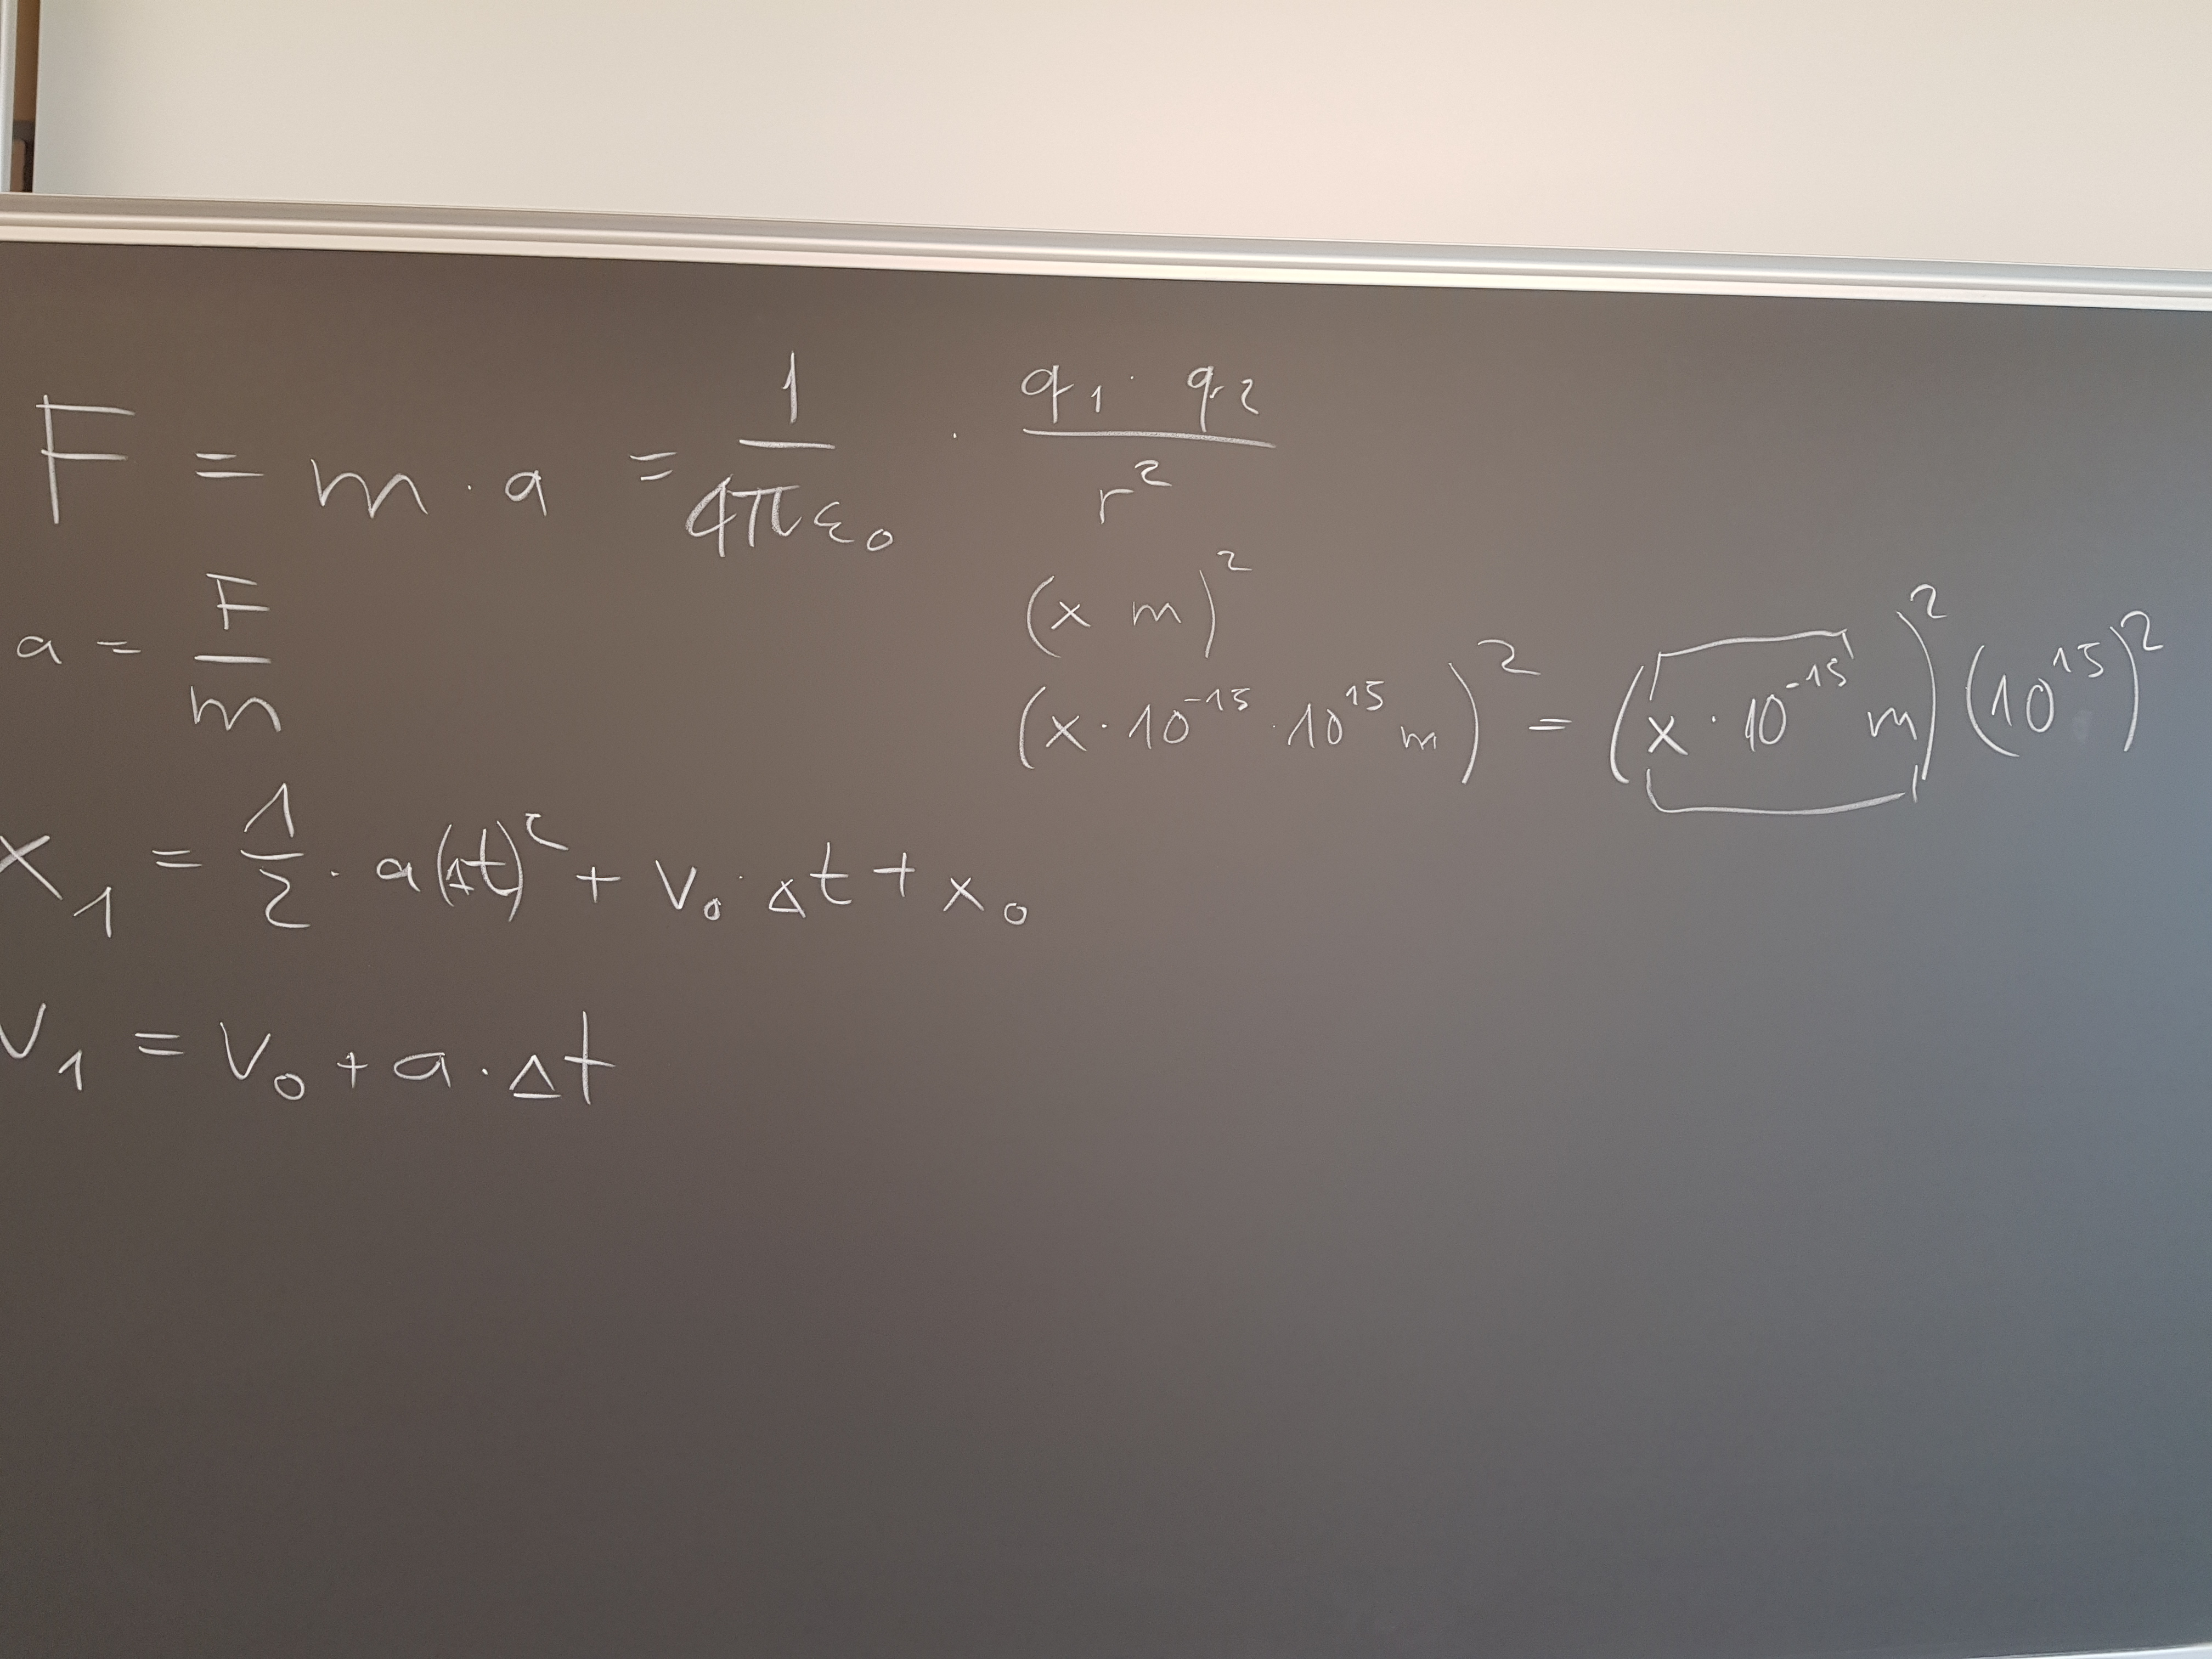 F = m · a = 1/(4πε₀) · (q₁ · q₂)/r²
a = F/m
(x m)²
(x · 10⁻¹⁵ · 10¹⁵ m)² = (x · 10⁻¹⁵ m)² (10¹⁵)²
x₁ = 1/2 · a(Δt)² + v₀ · Δt + x₀
v₁ = v₀ + a · Δt